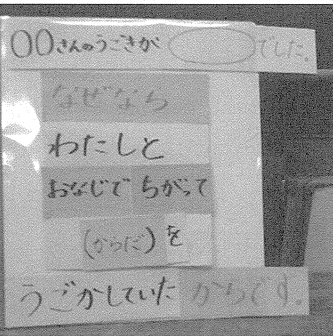 〇〇さんのうごきが でした。
なぜなら
わたしと
おなじで ちがって
(からだ)を
うごかしていた からです。